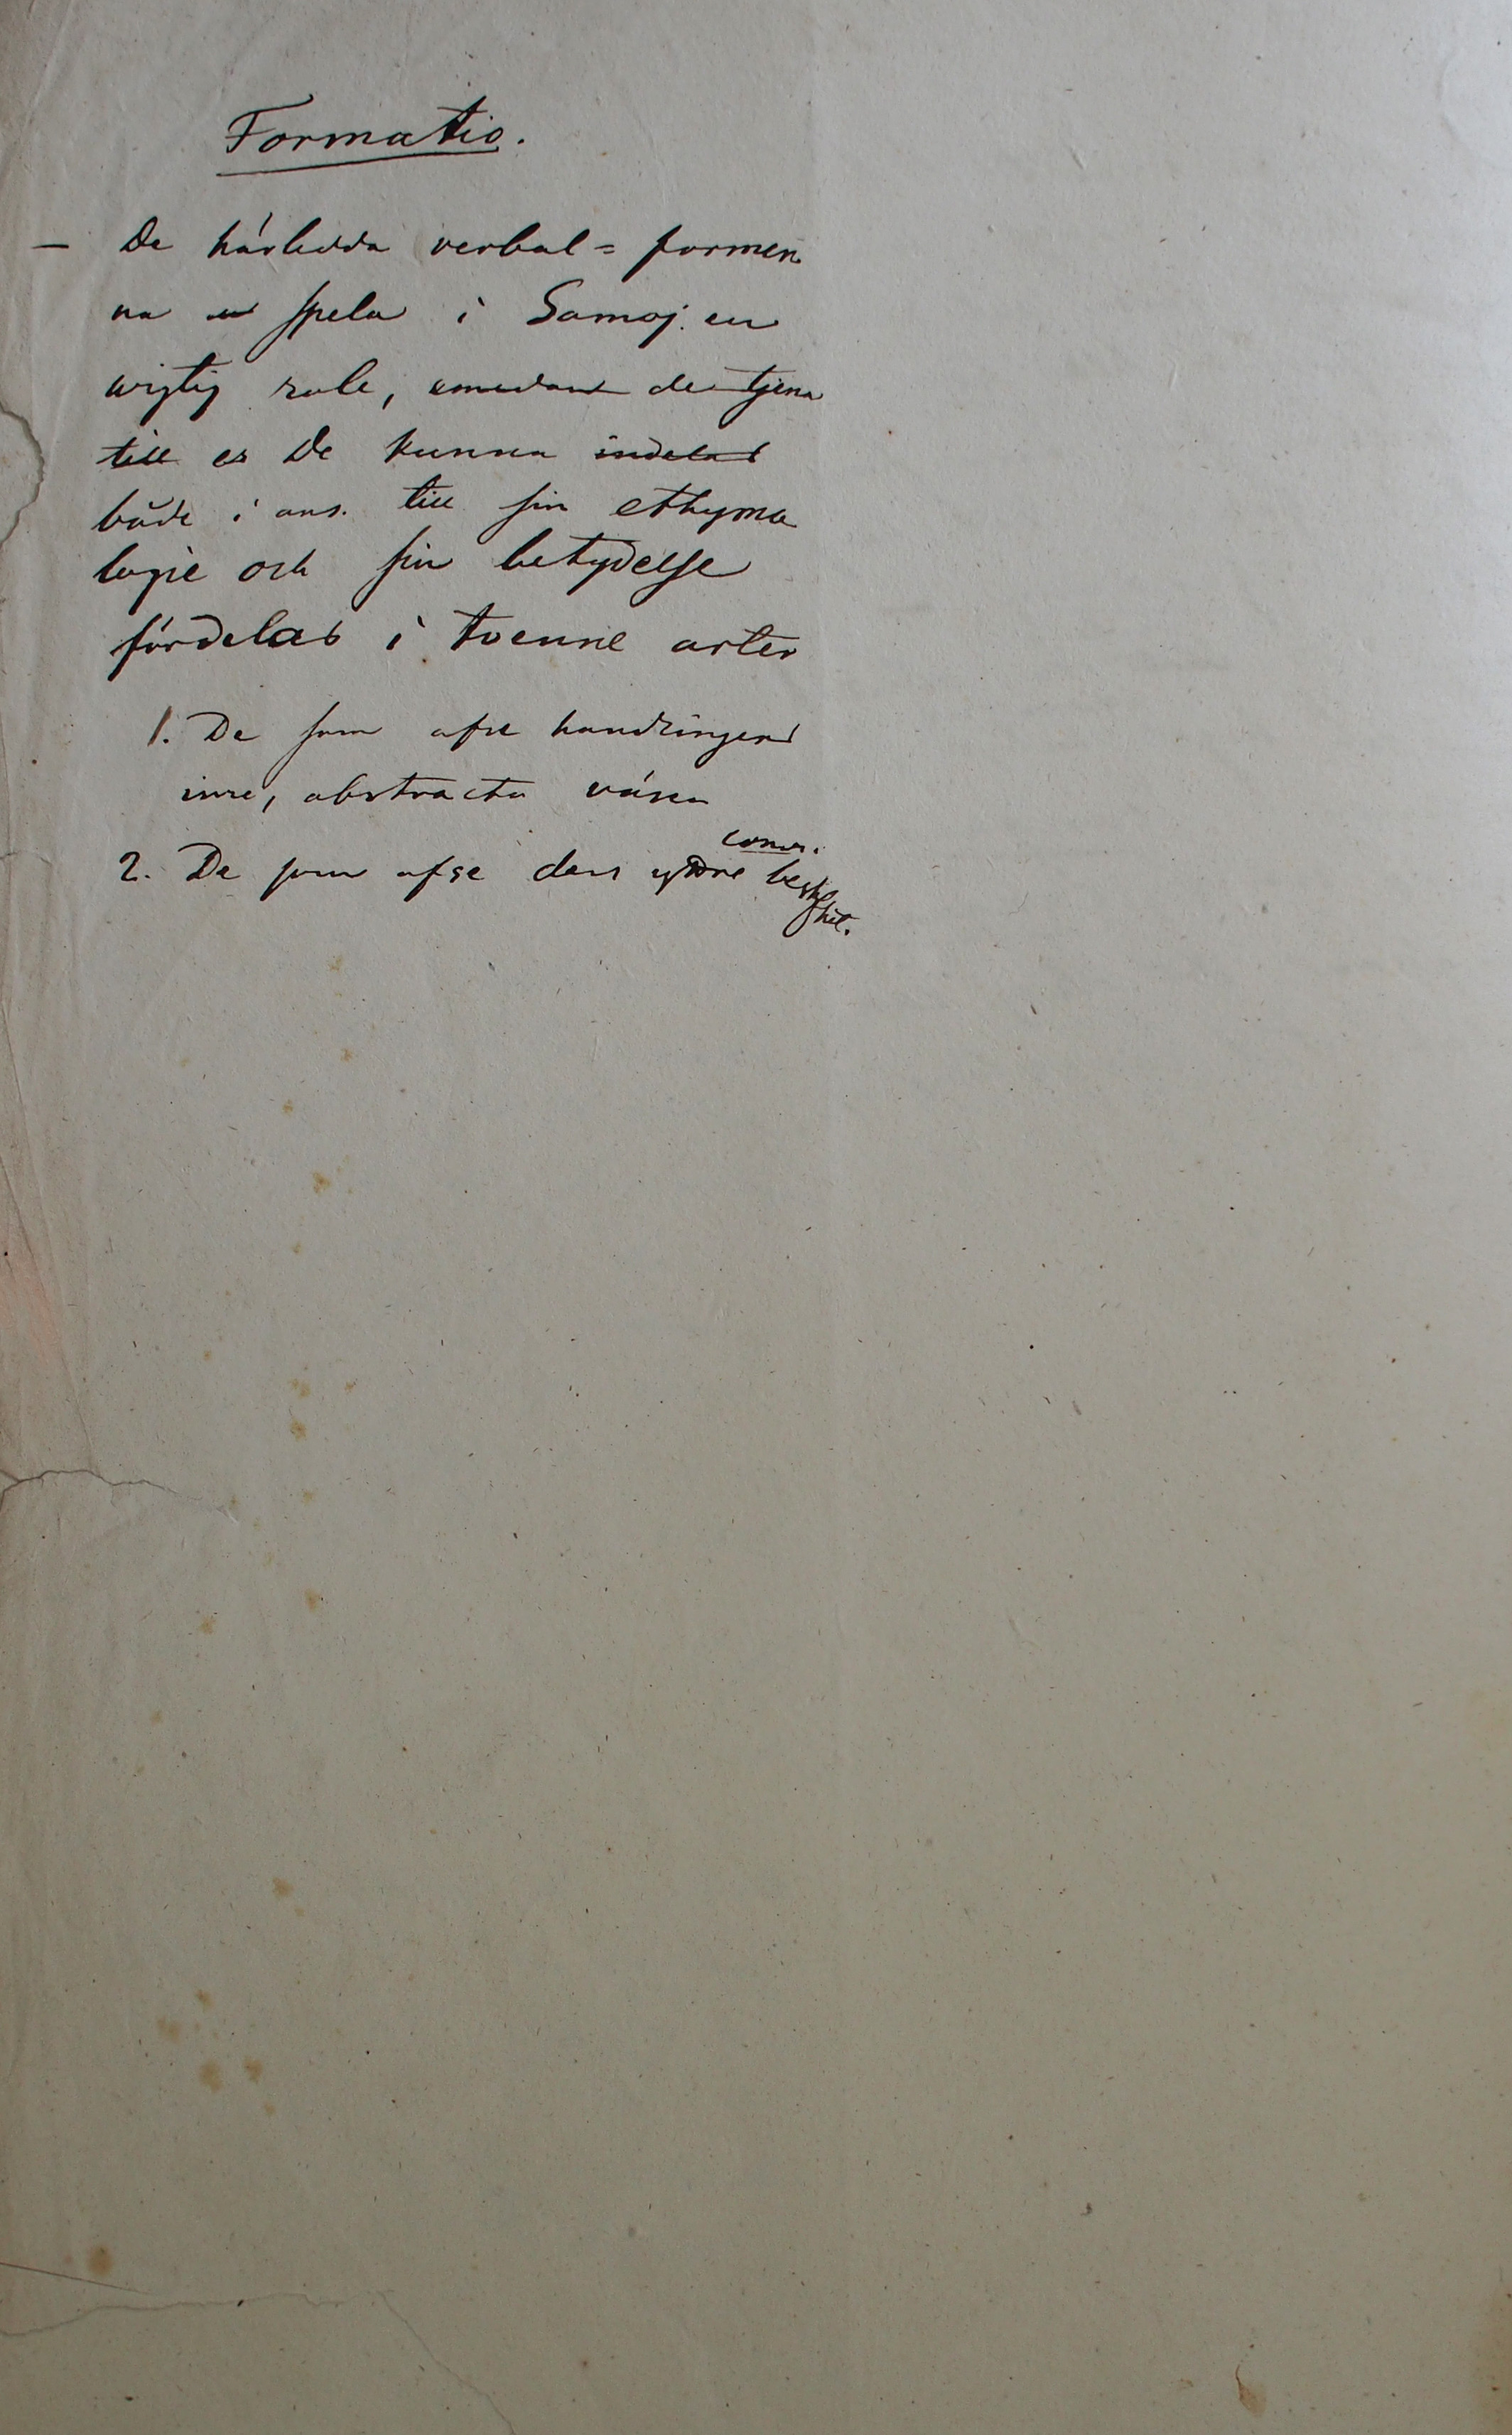 Formatio.
— De härledda verbal= formen
na spela i Samoj. en
wigtig role, emedan de tjena
till es De kunna indelas
både i ans. till sin ethymo
logie och sin betydelse
fördelas i tvenne arter
1. De som afse handlingens
inre, abstracta väsen
concr.
2. De som afse dess yttre